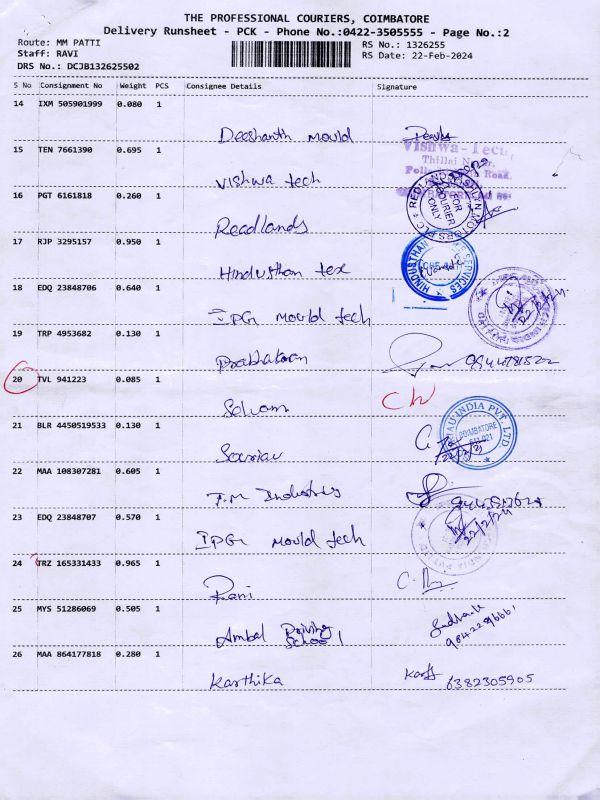 THE PROFESSIONAL COURIERS, COIMBATORE
Delivery Runsheet - PCK - Phone No.:0422-3505555 - Page No.:2
Route: MM PATTI
RS No.: 1326255
Staff: RAVI
RS Date: 22-Feb-2024
DRS No.: DCJB132625502
S No Consignment No Weight PCS Consignee Details Signature
14 IXM 505901999 0.080 1
Deeshanth mould
15 TEN 7661390 0.695 1
Vishwa-Tech
Thillai Nagar,
Road.
Vishwa tech
16 PGT 6161818 0.260 1
FOR COURIER ONLY
Readlands
17 RJP 3295157 0.950 1
HINDUSTHAN SERVICES
Hindusthan tex
18 EDQ 23848706 0.640 1
IPG mould tech
22/2/24
19 TRP 4953682 0.130 1
Prabhakaran
9944781522
20 TVL 941223 0.085 1
Selvam
21 BLR 4450519533 0.130 1
INDIA PVT LTD
COIMBATORE
641 021
Souriau
22 MAA 108307281 0.605 1
T.M Industries
23 EDQ 23848707 0.570 1
22/2/24
IPG mould tech
24 TRZ 165331433 0.965 1
Rani
25 MYS 51286069 0.505 1
Ambal Driving School
26 MAA 864177818 0.280 1
Karthika
6382305905